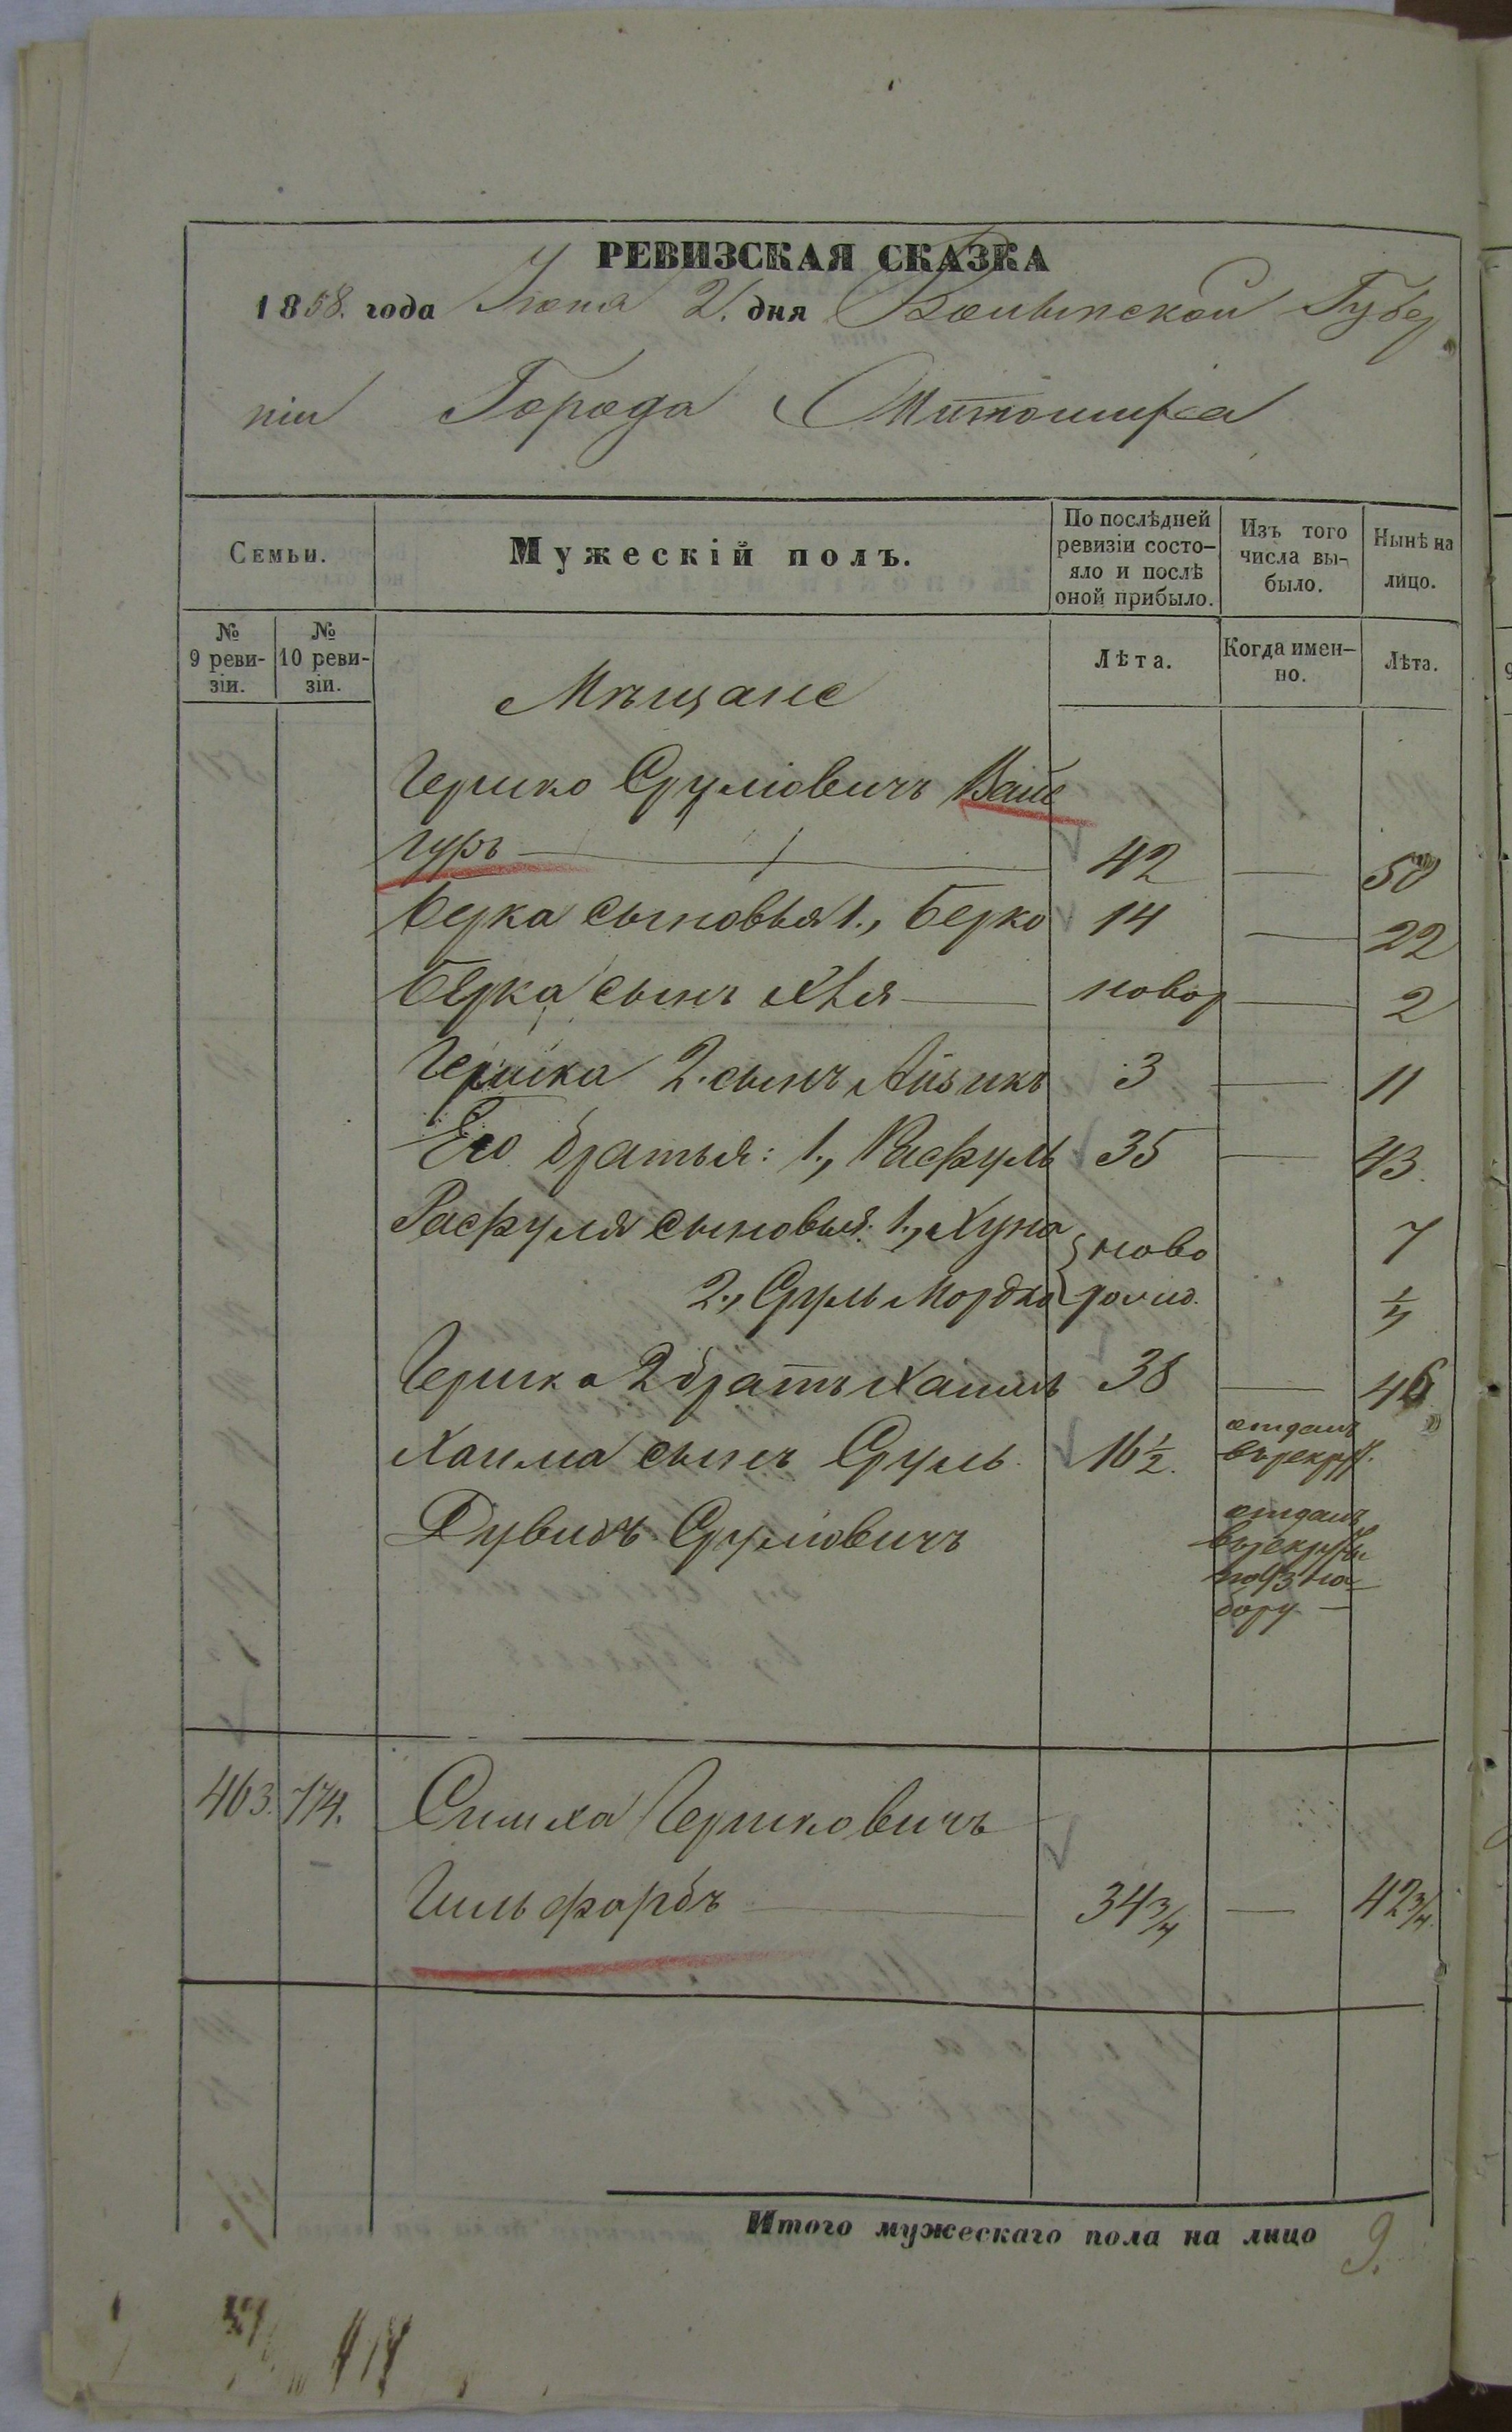 РЕВИЗСКАЯ СКАЗКА
1858. года Іюня 2. дня Волынской Губер
ніи Города Житомира
Семьи.
Мужескій полъ.
По послѣдней ревизіи состо-
яло и послѣ оной прибыло.
Изъ того числа вы-
было.
Нынѣ на лицо.
№ 9 реви-
зіи.
№ 10 реви-
зіи.
Лѣта.
Когда имен-
но.
Лѣта.
Мѣщане
Гершко Сруліовичъ Вайс
гуръ 42 — 50
Герка сыновья 1., Берко 14 — 22
Берка сынъ новор — 2
Гершка 2. сынъ Айзикъ 3 — 11
Его братья: 1., Расфуль 35 — 43.
Расфуля сыновья: 1., Хуна ново 7
2., Сруль Мордко рожд. ¼
Гершка 2 братъ Хаимъ 38 — 46
Хаима сынъ Сруль 16½. отданъ
въ рекрут.
Дувидъ Сруліовичъ отданъ
в рекруты
по 93 на-
бору —
463. 174. Симха Гершковичъ
Гильфарбъ 34¾ — 42¾.
Итого мужескаго пола на лицо 9.